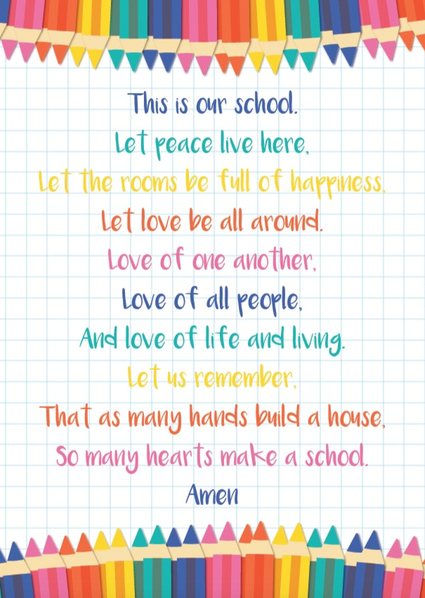 This is our school.
Let peace live here,
Let the rooms be full of happiness,
Let love be all around.
Love of one another,
Love of all people,
And love of life and living.
Let us remember,
That as many hands build a house,
So many hearts make a school.
Amen